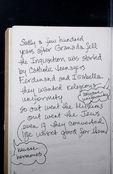 Sadly a few hundred
years after Granada fell
the Inquisition was started
by Catholic Queen
Ferdinand and Isabella
they wanted religious
uniformity
so out went the Muslims
out went the Jews
even if they converted
life wasn't good for them